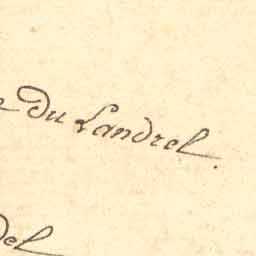 e du Landrel.
del